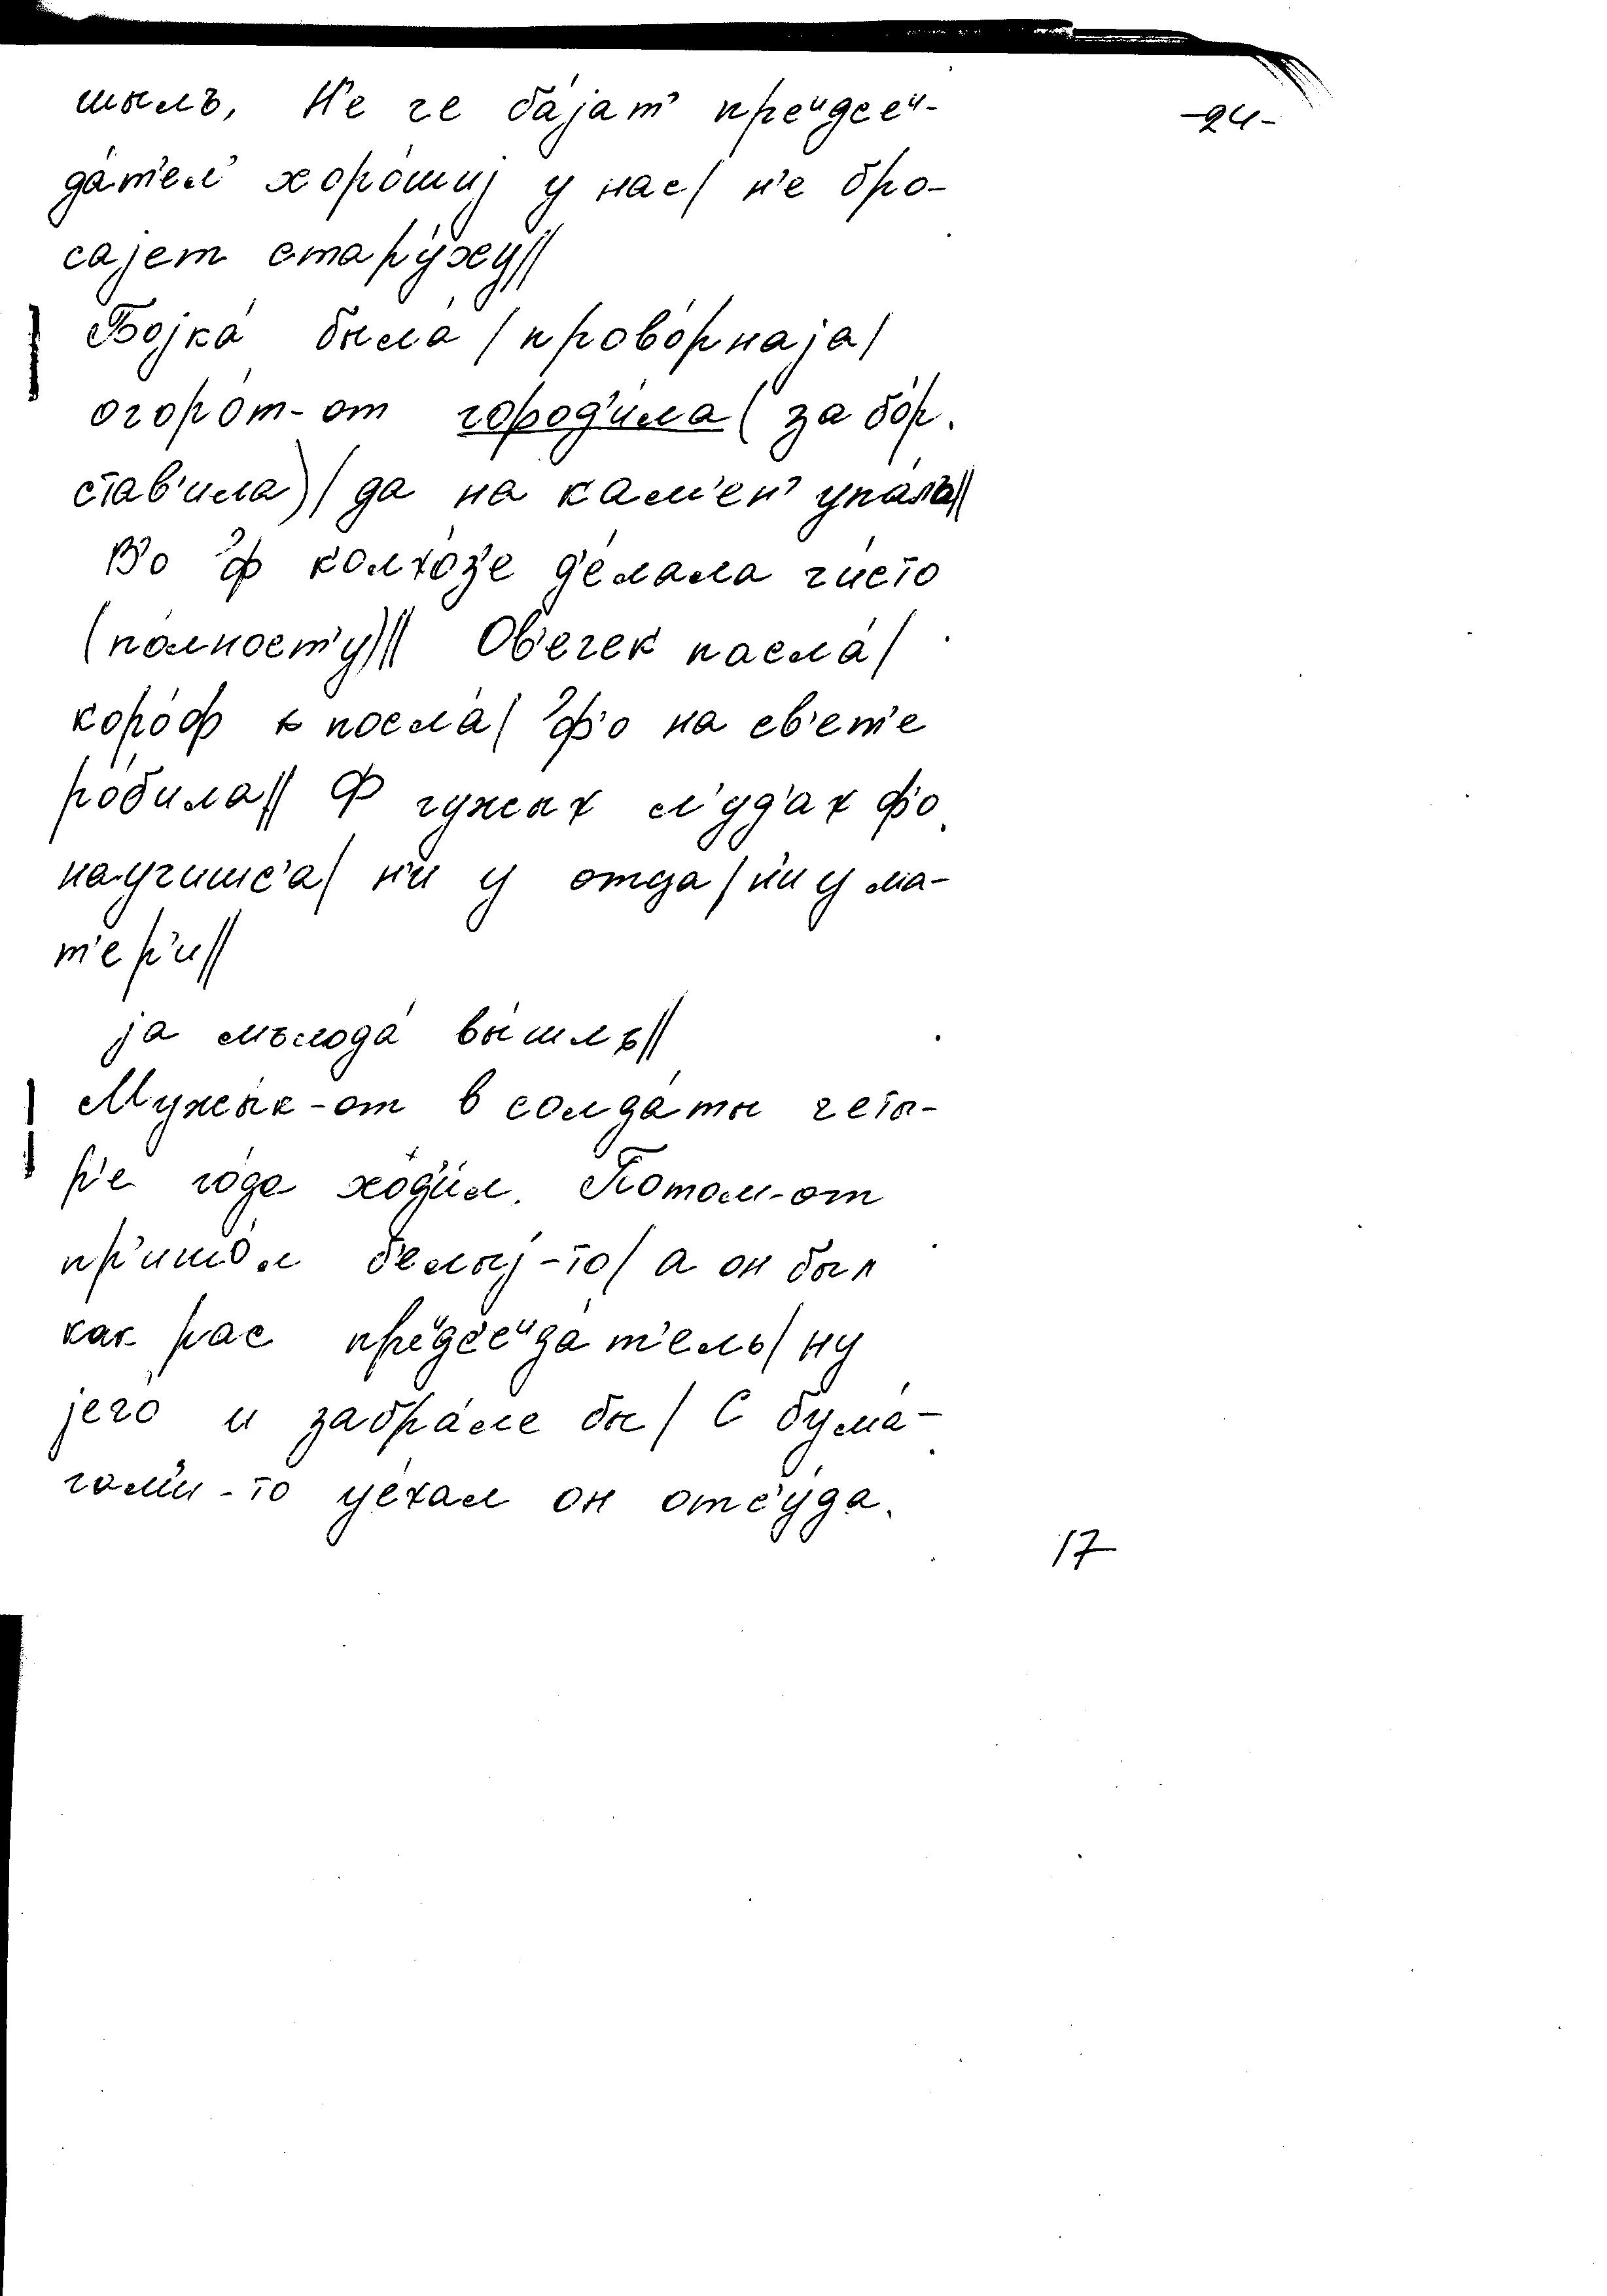 -24-
шылъ, Н'е че ба́јат' пре^идсе^и-
да́т'ел' хоро́шиј у нас/ н'е бро-
сајет стару́ху//
Бојка́ была́ / прово́рнаја/
огоро́т-от город'и́ла (забо́р
ста́в'ила)/ да на кам'ен' упа́ла//
В'о ф колхо́з'е д'е́лала чи́сто
(по́лност'у)// Ов'ечек пасла́/
коро́ф посла́/ ф'о на св'ет'е
ро́била// Ф чужых л'у́д'ах ф'о
научишс'а/ н'и у отца/ н'и у ма-
т'ер'и//
ја мълода́ вы́шлъ//
Мужы́к-от в солда́ты четы-
р'е го́да ход'и́л. Потом-от
пр'ишо́л б'е́лыј-то/ а он был
как рас пре^идс'е^ида́т'ель/ ну
јего́ и забра́ле бы/ С бума́-
гам'и-то уе́хал он отс'у́да.
17